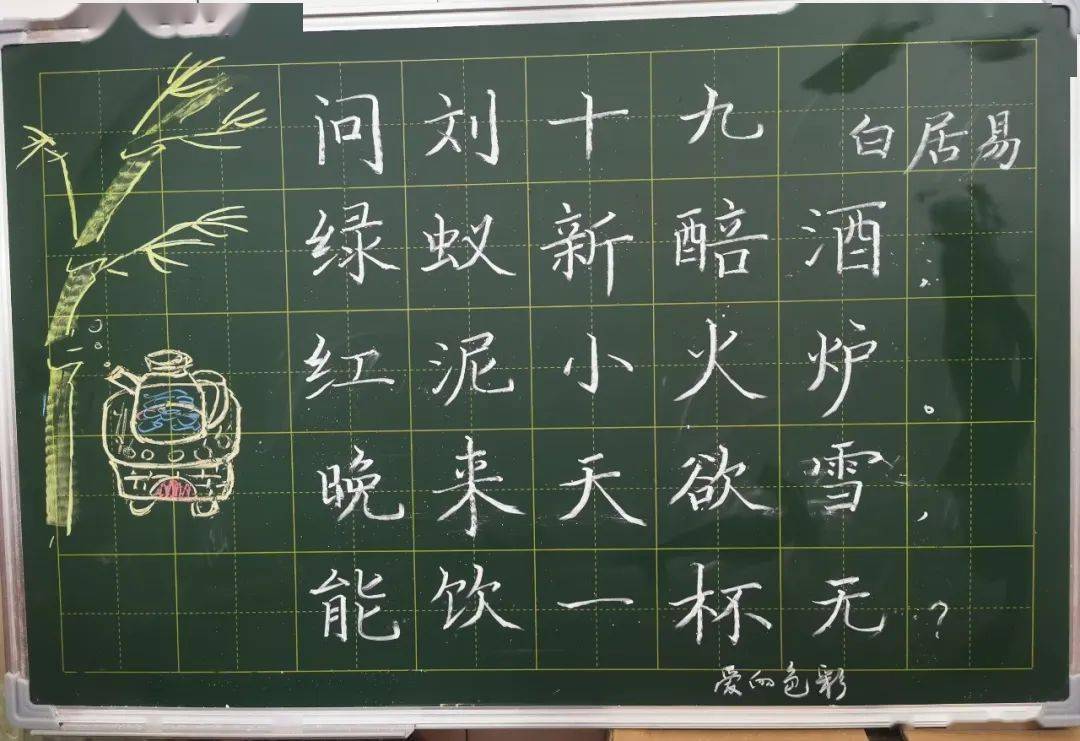 问刘十九 白居易
绿蚁新醅酒,
红泥小火炉。
晚来天欲雪,
能饮一杯无?
爱的色彩